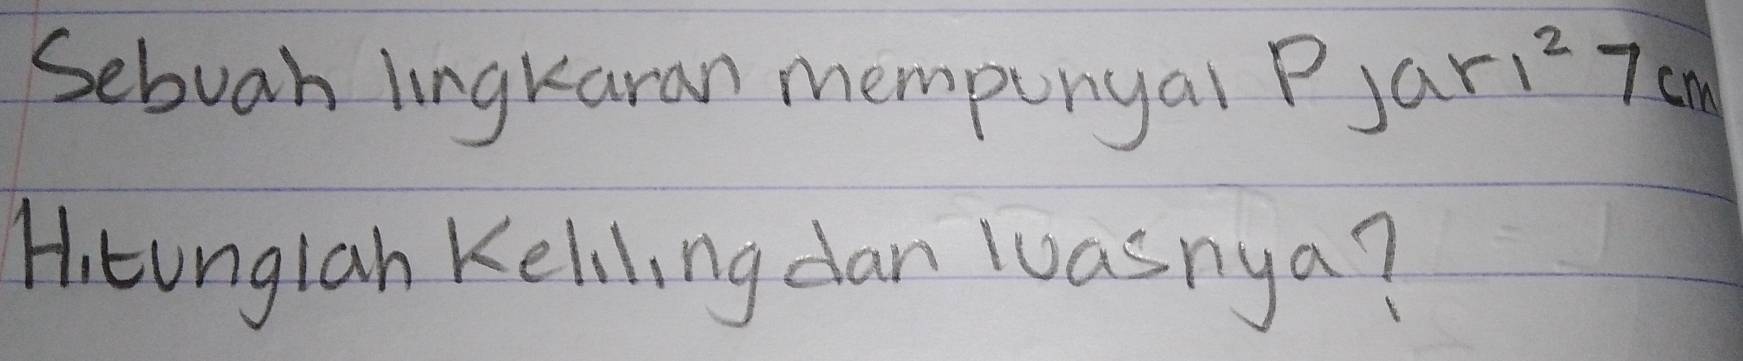 Sebuah lingkaran mempunyai P jari² 7 cm
Hitunglah Keliling dan luasnya?